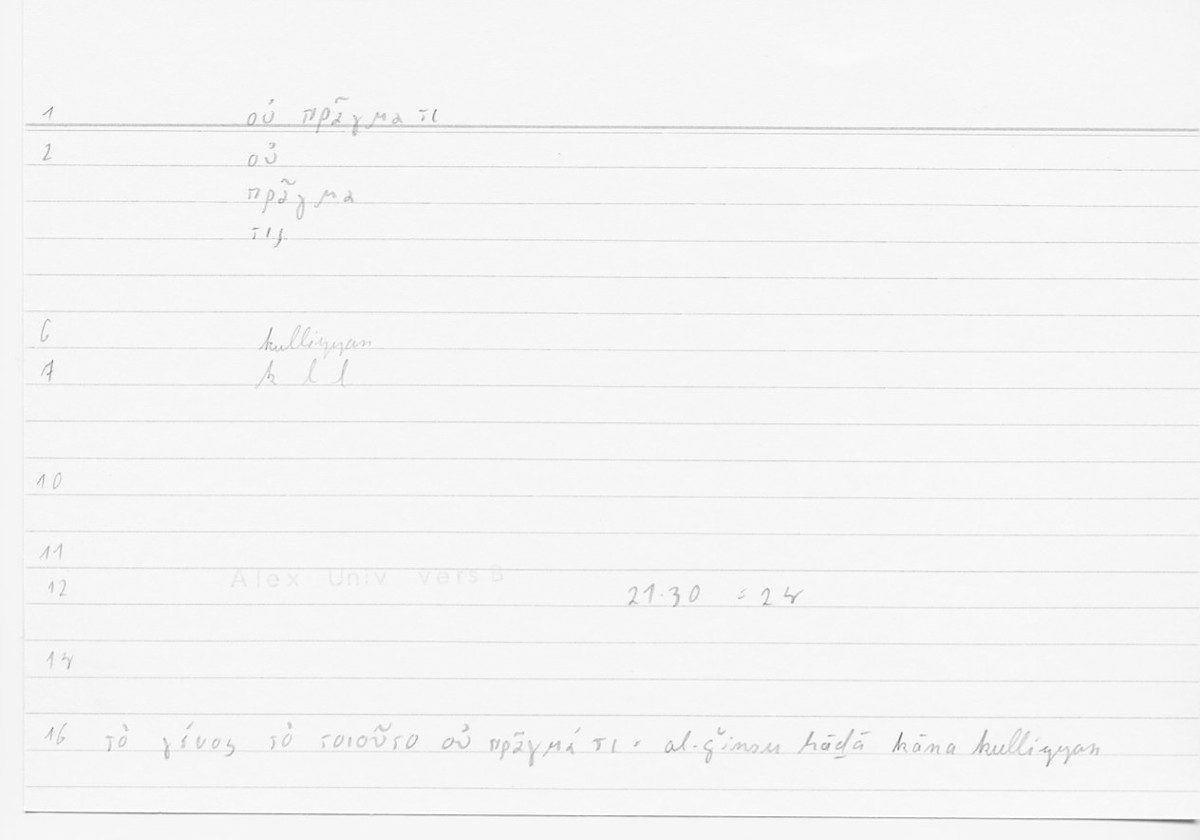 1 οὐ πρᾶγμα τι
2 οὐ
πρᾶγμα
τις
6 kulliyyan
7 k l l
10
11
12 Alex Univ vers B 21.30 = 24
14
16 τὸ γένος τὸ τοιοῦτο οὐ πρᾶγμά τι = al-ǧinsu hāḏā kāna kulliyyan